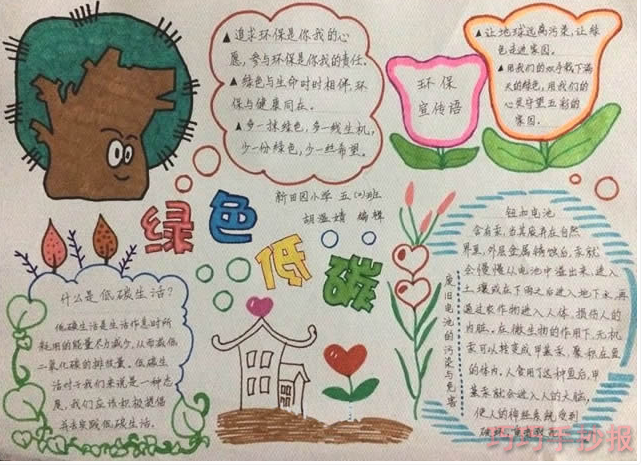 ▲追求环保是你我的心
愿，参与环保是你我的责任。
▲绿色与生命时时相伴，环
保与健康同在。
▲多一抹绿色，多一线生机，
少一份绿色，少一丝希望。
环保
宣传语
▲让地球远离污染，让绿
色走进家园。
▲用我们的双手栽下满
天的绿色，用我们的
心灵守望五彩的
家园。
新田园小学 五(2)班
胡滢婧 编辑
绿色
低碳
什么是低碳生活？
低碳生活是生活作息时所
耗用的能量尽力减少，从而减低
二氧化碳的排放量。低碳生
活对于我们来说是一种态
度，我们应该积极提倡
并去实践低碳生活。
废旧电池的污染与危害
钮扣电池
含有汞，当其废弃在自然
界里，外层金属锈蚀后，汞就
会慢慢从电池中溢出来，进入
土壤或在下雨之后进入地下水，再
通过农作物进入人体，损伤人的
内脏。在微生物的作用下，无机
汞可以转变成甲基汞，聚积在鱼
的体内，人食用了这种鱼后，甲
基汞就会进入人的大脑，
使人的神经系统受到
巧巧手抄报